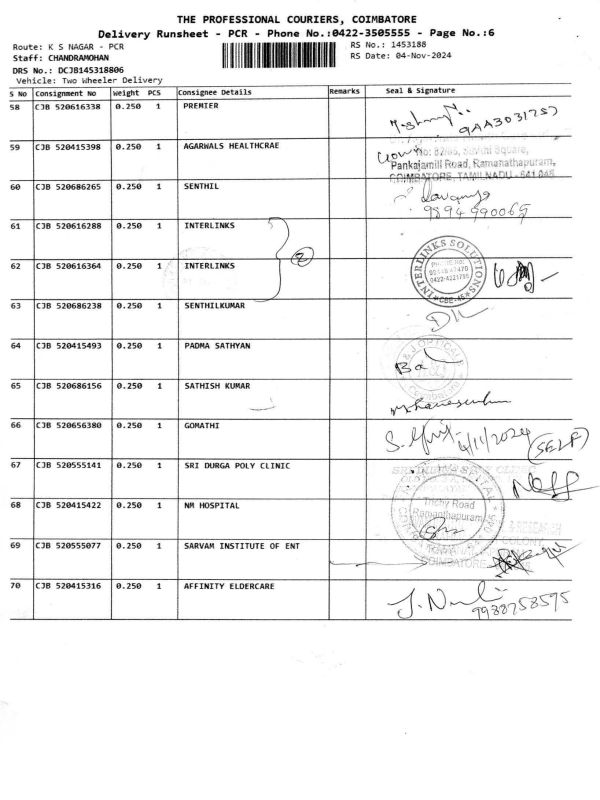 THE PROFESSIONAL COURIERS, COIMBATORE
Delivery Runsheet - PCR - Phone No.:0422-3505555 - Page No.:6
Route: K S NAGAR - PCR
RS No.: 1453188
Staff: CHANDRAMOHAN
RS Date: 04-Nov-2024
DRS No.: DCJB145318806
Vehicle: Two Wheeler Delivery
S No Consignment No Weight PCS Consignee Details Remarks Seal & Signature
58 CJB 520616338 0.250 1 PREMIER
9AA3031757
59 CJB 520415398 0.250 1 AGARWALS HEALTHCRAE
Pankajamill Road, Ramanathapuram,
COIMBATORE, TAMILNADU - 641 045
60 CJB 520686265 0.250 1 SENTHIL
9894990065
61 CJB 520616288 0.250 1 INTERLINKS
2
INTERLINKS SOLUTIONS
0422-4221795
*CBE-45*
62 CJB 520616364 0.250 1 INTERLINKS
63 CJB 520686238 0.250 1 SENTHILKUMAR
64 CJB 520415493 0.250 1 PADMA SATHYAN
65 CJB 520686156 0.250 1 SATHISH KUMAR
66 CJB 520656380 0.250 1 GOMATHI
4/11/2024 (SELF)
67 CJB 520555141 0.250 1 SRI DURGA POLY CLINIC
68 CJB 520415422 0.250 1 NM HOSPITAL
Trichy Road
Ramanthapuram
69 CJB 520555077 0.250 1 SARVAM INSTITUTE OF ENT
COLONY
COIMBATORE
70 CJB 520415316 0.250 1 AFFINITY ELDERCARE
9988758595